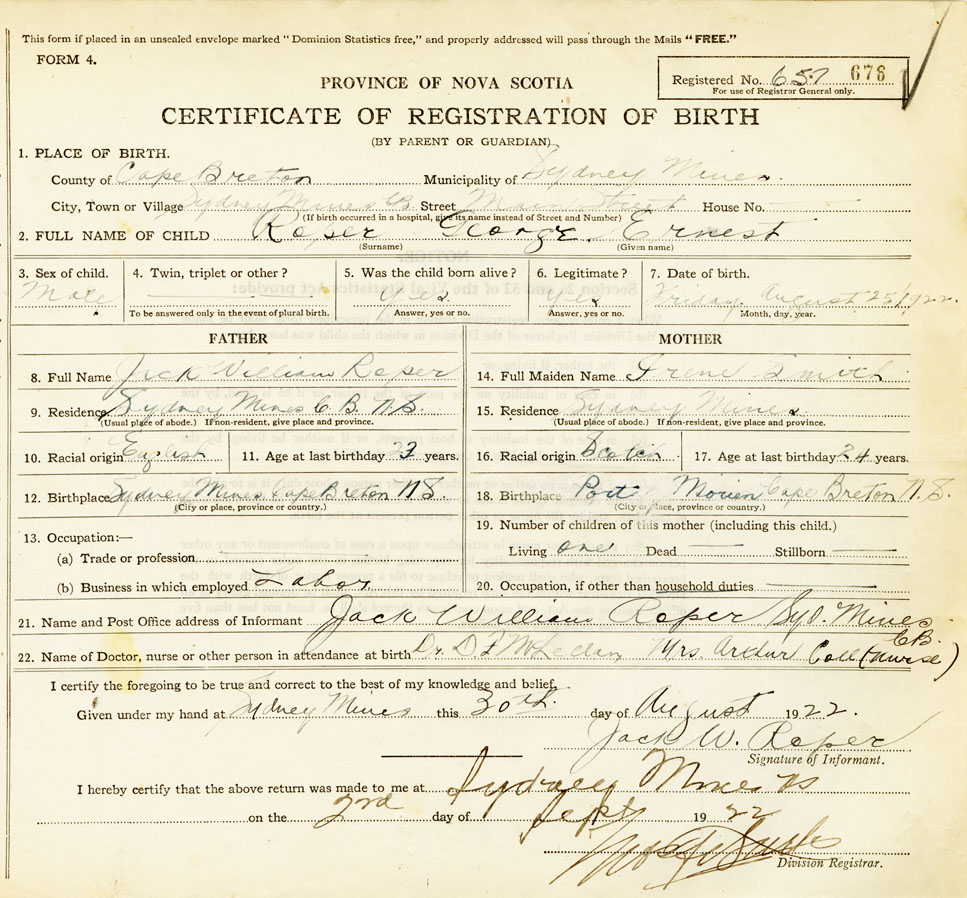 This form if placed in an unsealed envelope marked "Dominion Statistics free," and properly addressed will pass through the Mails "FREE."
FORM 4.
Registered No. 657 676
For use of Registrar General only.
PROVINCE OF NOVA SCOTIA
CERTIFICATE OF REGISTRATION OF BIRTH
(BY PARENT OR GUARDIAN)
1. PLACE OF BIRTH.
County of Cape Breton Municipality of Sydney Mines
City, Town or Village Sydney Mines C.B. Street Main Street House No.
(If birth occurred in a hospital, give its name instead of Street and Number)
2. FULL NAME OF CHILD Roper George Ernest
(Surname) (Given name)
3. Sex of child. 4. Twin, triplet or other? 5. Was the child born alive? 6. Legitimate? 7. Date of birth.
Male Yes. Yes Friday August 25/1922.
To be answered only in the event of plural birth. Answer, yes or no. Answer, yes or no. Month, day, year.
FATHER MOTHER
8. Full Name Jack William Roper 14. Full Maiden Name Irene Smith
9. Residence Sydney Mines C.B. N.S. 15. Residence Sydney Mines
(Usual place of abode.) If non-resident, give place and province. (Usual place of abode.) If non-resident, give place and province.
10. Racial origin English 11. Age at last birthday 23 years. 16. Racial origin Scotch 17. Age at last birthday 24 years.
12. Birthplace Sydney Mines Cape Breton N.S. 18. Birthplace Port Morien Cape Breton N.S.
(City or place, province or country.) (City or place, province or country.)
13. Occupation:— 19. Number of children of this mother (including this child.)
(a) Trade or profession Living one Dead Stillborn
(b) Business in which employed Labor 20. Occupation, if other than household duties
21. Name and Post Office address of Informant Jack William Roper Syd. Mines C.B.
22. Name of Doctor, nurse or other person in attendance at birth Dr. D F Mrs. Arthur (nurse)
I certify the foregoing to be true and correct to the best of my knowledge and belief.
Given under my hand at Sydney Mines this 30th day of August 1922.
Jack W. Roper
Signature of Informant.
I hereby certify that the above return was made to me at Sydney Mines
on the 2nd day of Sept 1922
Division Registrar.